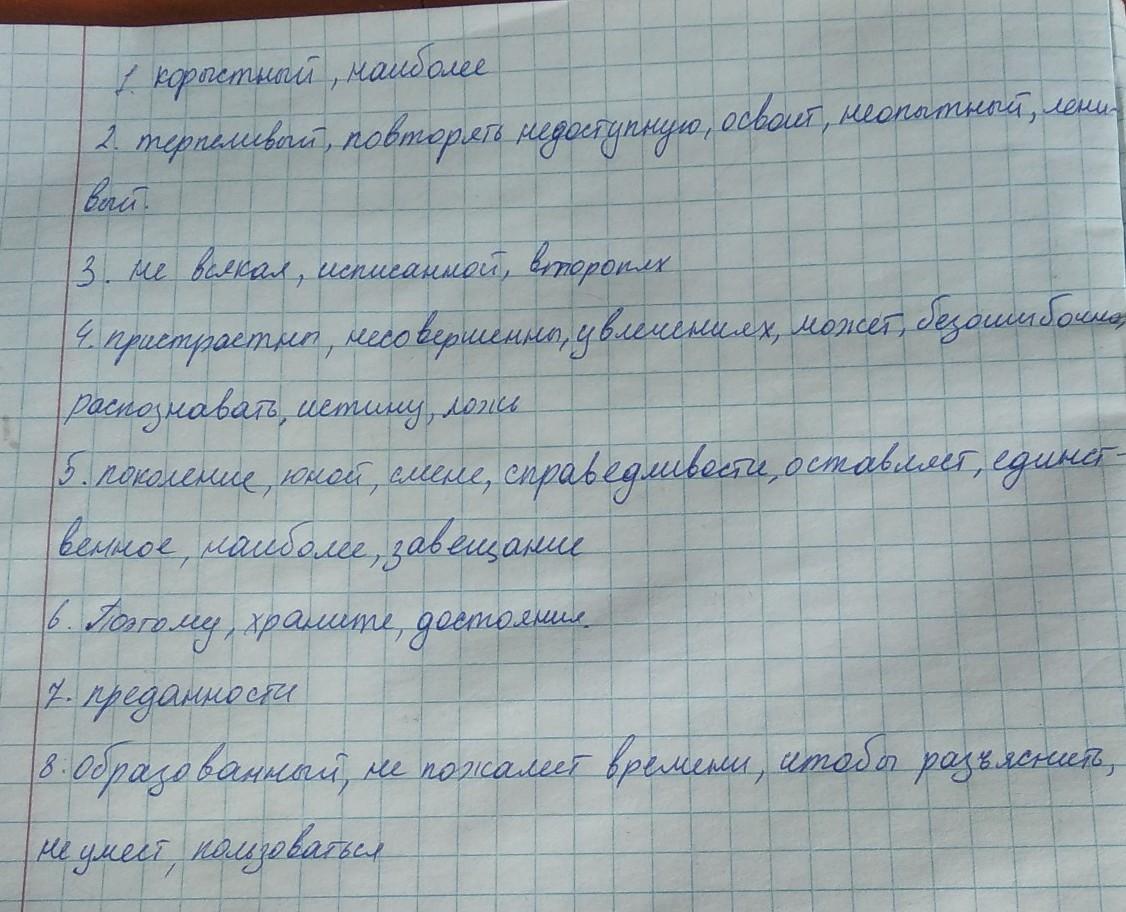 1. корыстный, наиболее
2. терпеливый, повторять недоступную, освоит, неопытный, лени-
вый.
3. не всякая, исписанной, второпях
4. пристрастны, несовершенны, увлечениях, может, безошибочно,
распознавать, истину, ложь
5. поколение, юной, смене, справедливости, оставляет, единст-
венное, наиболее, завещание
6. Поэтому, храните, достояния.
7. преданности
8. Образованный, не пожалеет времени, чтобы разъяснить,
не умеет, пользоваться